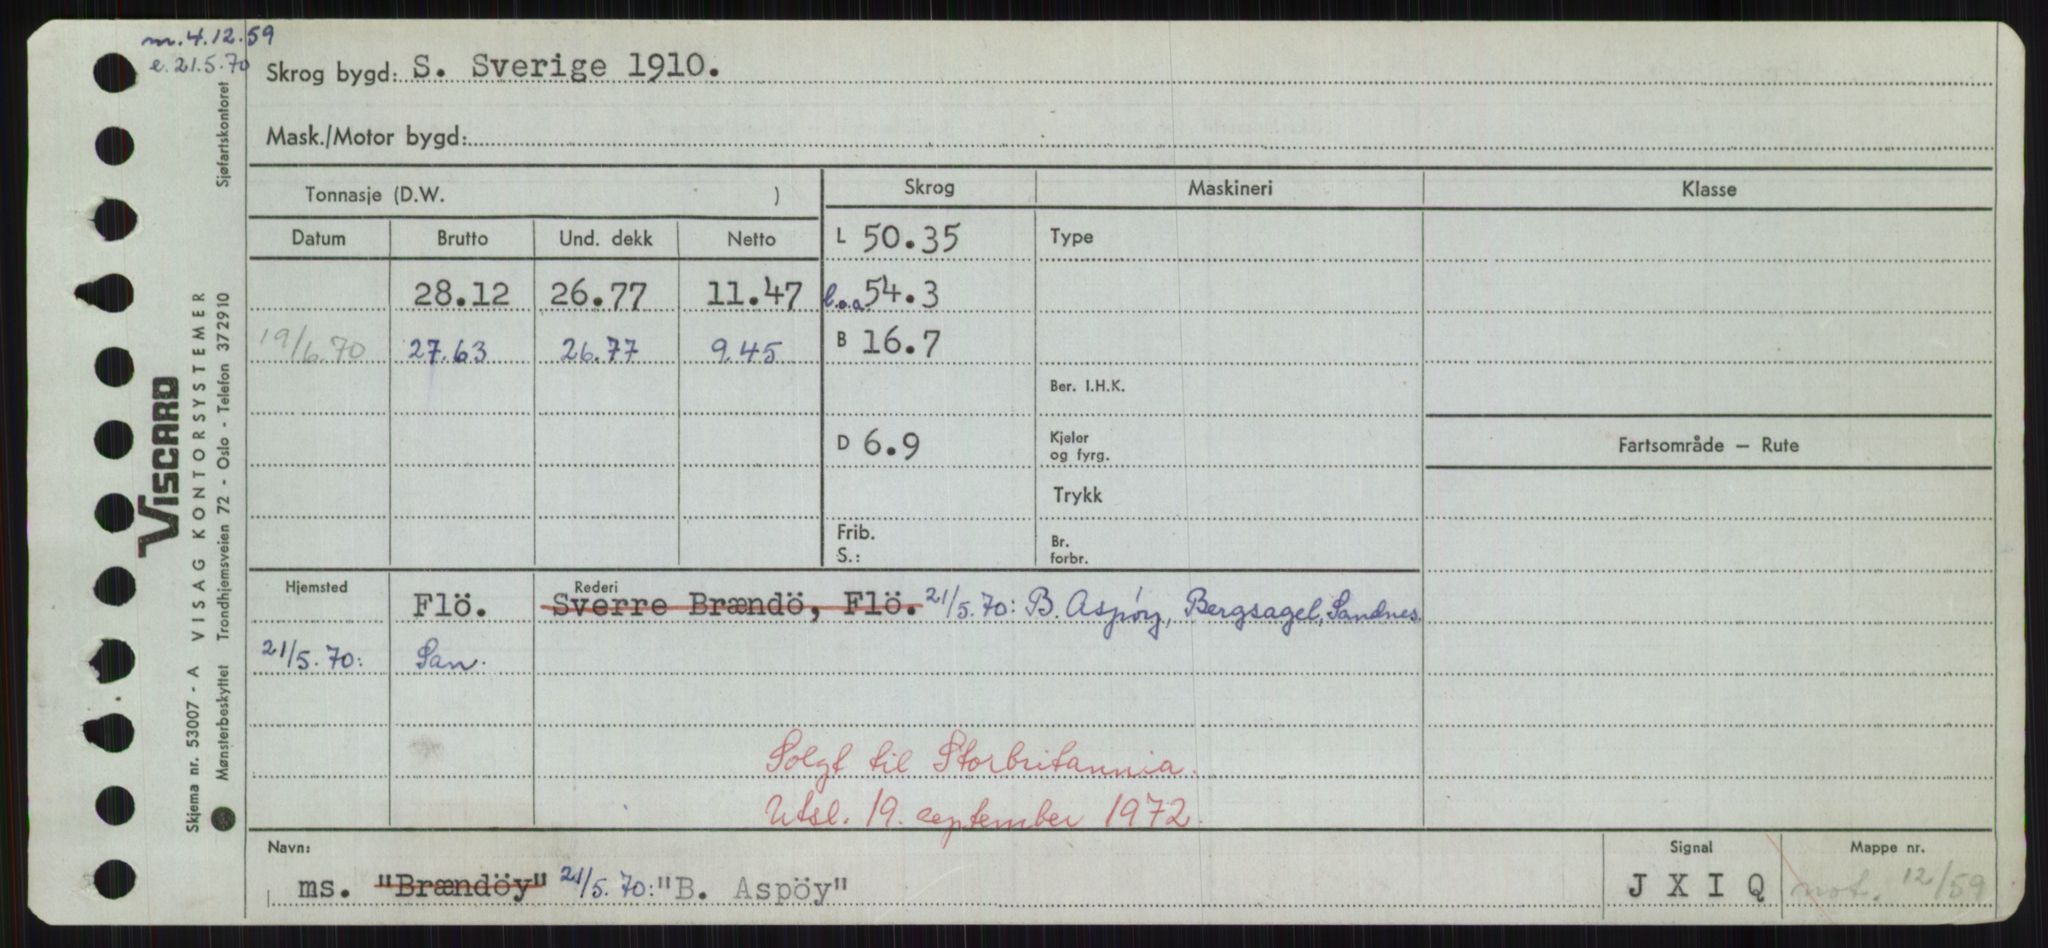 m. 4.12.59
e. 21.5.70
Skrog bygd: S. Sverige 1910.
Mask./Motor bygd:
Tonnasje (D.W. )
Skrog
Maskineri
Klasse
Datum Brutto Und. dekk Netto
L 50.35
Type
28.12 26.77 11.47
l.o.a. 54.3
19/6.70 27.63 26.77 9.45
B 16.7
Ber. I.H.K.
D 6.9
Kjeler
og fyrg.
Fartsområde — Rute
Trykk
Frib.
S.:
Br.
forbr.
Hjemsted
Rederi
Flö. Sverre Brændö, Flö. 21/5.70: B. Aspöy, Bergsagel, Sandnes.
21/5.70: San.
Solgt til Storbritannia.
Utsl. 19. september 1972.
Navn:
Signal
Mappe nr.
ms. "Brændöy" 21/5.70: "B. Aspöy"
J X I Q
not. 12/59
Sjøfartskontoret
VISCARD
VISAG KONTORSYSTEMER
Trondhjemsveien 72 - Oslo - Telefon 372910
Skjema nr. 53007 - A
Mønsterbeskyttet